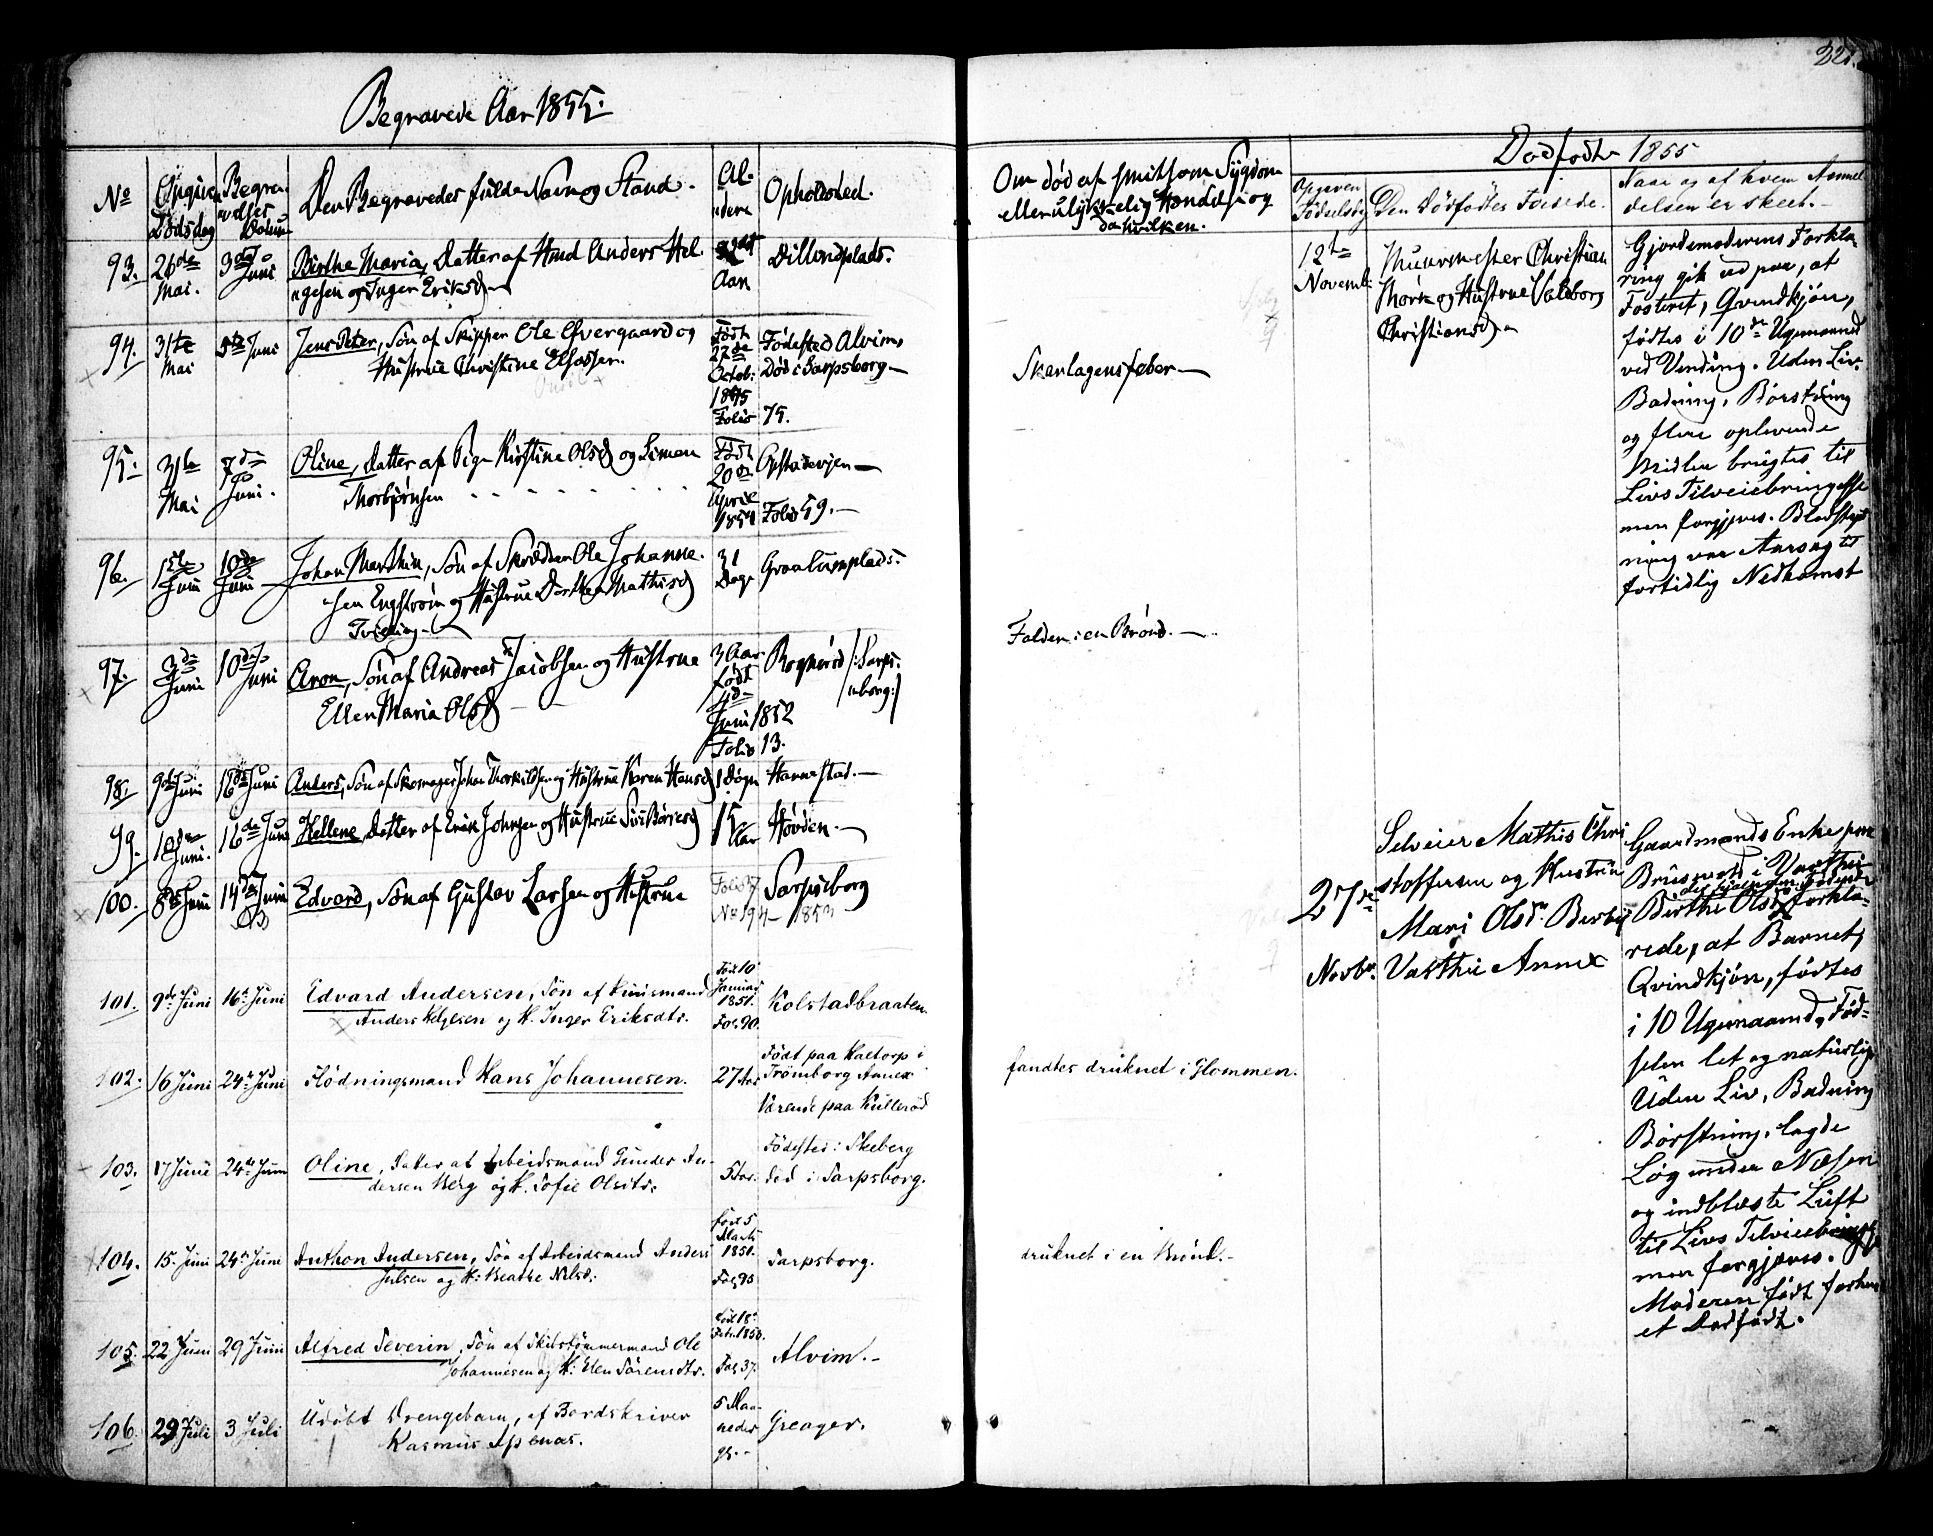 221.
Begravede Aar 1855.
Dødfødte 1855
No
Dødsdag
Begra-
velses
Datum
Den Begravedes fulde Navn og Stand.
Al-
dere
Opholdsted.
Om død af smitsom Sygdom
eller ulykkelig Hændelse og
da hvilken.
Opgiven
Fødselsdag
Den Dødfødtes Forældre.
Naar og af hvem Anmel
delsen er skeet.
93. 26de Mai. 3de Juni
Birthe Maria, Datter af Hmd Anders Hel-
gesen og Inger Eriksd
Aar
Dillundplads.
94. 31te Mai 5te Juni
Jens Peter, Søn af Skipper Ole Overgaard og
Hustrue Christine Elfassen.
Født
27de
Octob:
Folio 75.
Fødested Alvim,
Død i Sarpsborg
Skarlagensfeber
95. 31te Mai 7de Juni.
Oline, Datter af Pige Kirstine Olsd og Simen
Thorbjørnsen
Født
20de
April
1854
Folio 59.
Opstadeyen
96. 1ste Juni 10de Juni
Johan Marthin, Søn af Skrædder Ole Johanne-
sen Engstrøm og Hustrue Dorthea Mathisd
Tvilling
31
Dage
Graalumplads.
97. 3de Juni 10de Juni
Aron, Søn af Andreas Jacobsen og Hustrue
Ellen Maria Olsd
3 Aar
født
4de
Juni 1852
Folio 13.
/: Sarps-
borg :/
Falden i en Brønd.
98. 9de Juni 16de Juni
Anders, Søn af Skomager Johan Thorkildsen og Hustrue Karen Hansd
1 Døgn
Hannestad.
99. 10de Juni. 16de Juni
Hellene, Datter af Erik Johnsen og Hustrue Siri Børresd
15
Aar
Hovden.
100. 8de Juni 14de Juni
Edvard, Søn af Gustav Larsen og Hustrue
Folio 7
No 194 1853
Sarpsborg
101. 9de Juni 16de Juni
Edvard Andersen, Søn af Huusmand
Anders Helgesen og H. Inger Eriksdtr.
Født 10
Januar
1851.
Fol. 90.
Kolstadbraaten.
102. 16 Juni 24de Juni
Flødningsmand Hans Johannesen.
27 Aar
Født paa Haltorp i
Trømborg Annex
Værende paa Kullerød
fandtes druknet i Glommen.
103. 17 Juni 24de Juni
Oline, Datter af Arbeidsmand Gunder An-
dersen Berg og H. Sofie Olsdtr.
5 Aar.
Fødested: Skeberg
død i Sarpsborg.
104. 15. Juni 24de Juni
Anthon Andersen, Søn af Arbeidsmand Anders
Julsen og H: Beathe Nilsd:
født 5
Marts
1851.
Fol. 93
Sarpsborg.
druknet i en Brønd.
105. 22 Juni 29 Juni
Alfred Severin, Søn af Skibstømmermand Ole
Johannesen og H: Elen Sørensdtr.
Født 18
Febr. 1850.
Fol. 37.
Alvim.
106. 29 Juli 3 Juli
Udøbt Drengebarn, af Bordskriver
Rasmus Apenæs.
5 Maa-
neder
gl.
Greager.
12te
Novemb.
Muurmester Christian
Mørk og Hustrue Valborg
Christiansd
Gjordemoderens Forkla
ring gik ud paa, at
Fosteret, Qvindkjøn,
fødtes i 10de Ugemaaned
ved Vending. Uden Liv.
Badning, Børstning
og flere oplivende
Midler brugtes til
Livs Tilveiebringelse
men forgjæves. Blodstyrt
ning var Aarsag til
fortidlig Nedkomst
27de
Novbr.
Selveier Mathis Chri
stoffersen og Hustru
Mari Olsdr. Berby
Varthei Annex
Gaardmands Enke paa
Brusvold i Varthei
Birthe Olsdr forkla-
rede, at Barnet,
Qvindkjøn, fødtes
i 10 Ugemaaned, Fød-
selen let og naturlig
Uden Liv, Badning
Børstning, lagde
Løg under Næsen
og indblæste Luft
til Livs Tilveiebringelse
men forgjæves.
Moderen født forhen
et Dødfødt.